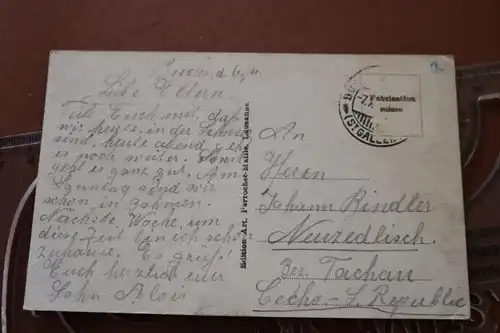 d. 6.
Liebe Eltern.
Teile Euch mit, daß
wir heute, in der Schweiz
sind, heute abend geht
es noch weiter. Sonst
geht es ganz gut. Am
Sonntag sind wir
schon in
Nächste Woche, um
diese Zeit bin ich schon
zuhause. Es grüßt
Euch herzlich euer
Sohn Alois
Edition Art. Perrochet-Matile, Lausanne.
Fabrication
suisse
-7.
(ST. GALLEN)
An
Herrn
Johann Rindler
Neuzedlisch.
Bez. Tachau
Čecho-S. Republic